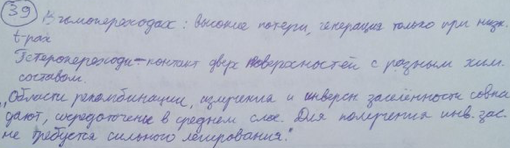 39 В гомопереходах: высокие потери, генерация только при низк.
t-рах
Гетеропереходы - контакт двух поверхностей с разным хим.
составом.
„Области рекомбинации, излучения и инверсн. заселённости совпа
дают, сосредоточены в среднем слое. Для получения инв. зас.
не требуется сильного легирования."